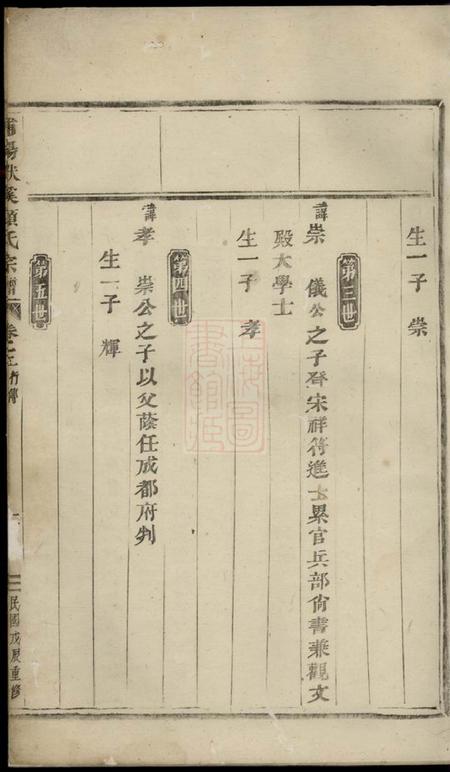 生一子 崇
第三世
諱崇 儀公之子登宋祥符進士累官兵部尙書兼觀文
殿大學士
生一子 孝
第四世
諱孝 崇公之子以父蔭任成都府判
生一子 輝
第五世
浦陽 溪 氏宗譜 卷之 行傳
民國戊辰重修
上海圖書館藏